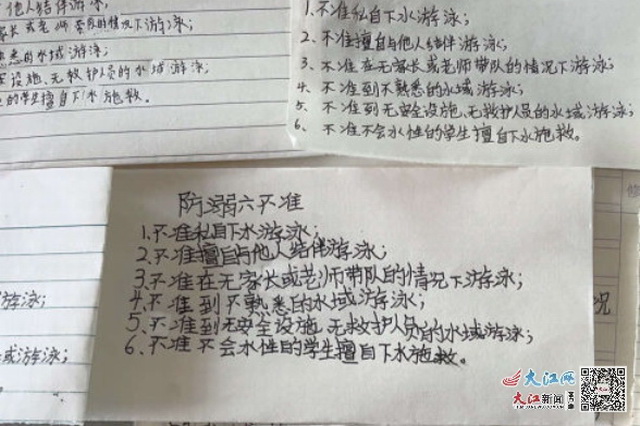 他人结伴游泳;
家长或老师带队的情况下游泳;
悉的水域游泳;
设施、无救护人员的水域游泳;
的学生擅自下水施救。
1、不准私自下水游泳;
2、不准擅自与他人结伴游泳;
3、不准在无家长或老师带队的情况下游泳;
4、不准到不熟悉的水域游泳;
5、不准到无安全设施、无救护人员的水域游泳;
6、不准不会水性的学生擅自下水施救。
防溺六不准
1.不准私自下水游泳;
2.不准擅自与他人结伴游泳;
3.不准在无家长或老师带队的情况下游泳;
4.不准到不熟悉的水域游泳;
5.不准到无安全设施、无救护人员的水域游泳;
6.不准不会水性的学生擅自下水施救。
游泳;
或游泳;
况
大江网
大江新闻